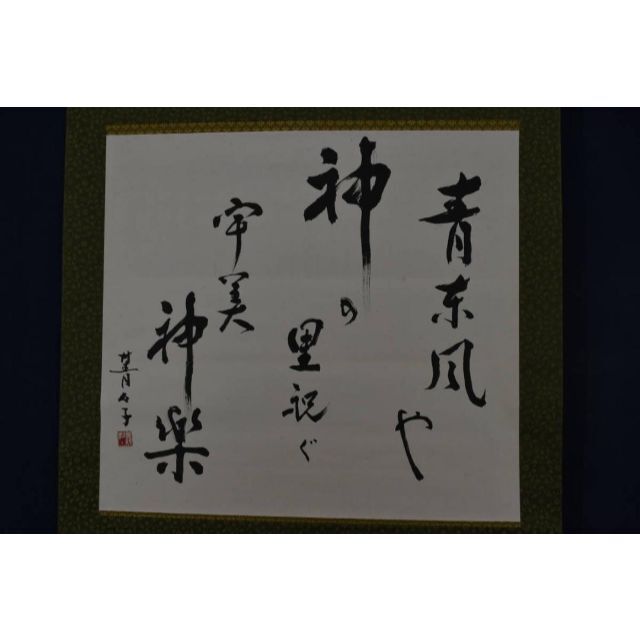 青东風や
神の里祝ぐ
宇美
神楽
菁々子